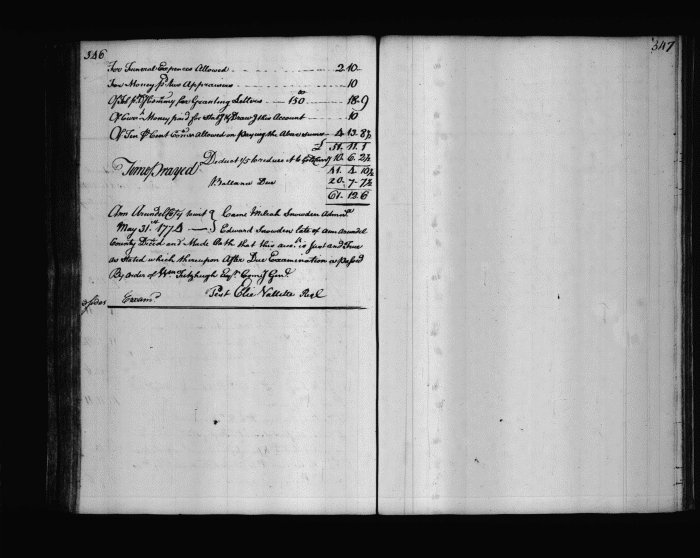 346
For Funeral Expences Allowed 2.10.
For Money pd. two Appraisers 10
Of Do. pd. Dy Commry for Granting Letters 150 18.9
Of Curt. Money paid for Stateg & Drawg this Account 10
Of Ten P Cent Comns. Allowed on paying the Above Sums 4.13.8½
£ 51.11.1
Deduct 1/5 to reduce it to 10.6.2½
Time Prayed 41.4.10½
Ballance Due 20.7.7½
61.12.6
Ann Arundel County to wit } Came Snowden Admx.
May 31st. 1774 } Edward Snowden late of Ann Arundel
County Deced and Made Oath that this acct. is Just and True
as Stated which thereupon After Due Examination is passed
By order of Wm. Fitzhugh Esqr. Comy Genl.
Test Elie Vallette Regl
3 sides Examd.
347